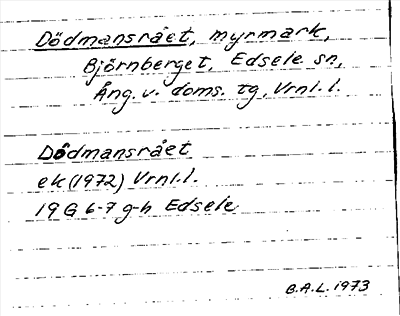 Dödmansrået, myrmark,
Björnberget, Edsele sn,
Ång. v. doms. tg, Vrnl. l.
Dödmansrået
ek (1972) Vrnl. l.
19 G 6-7 g-h Edsele
B.A.L. 1973